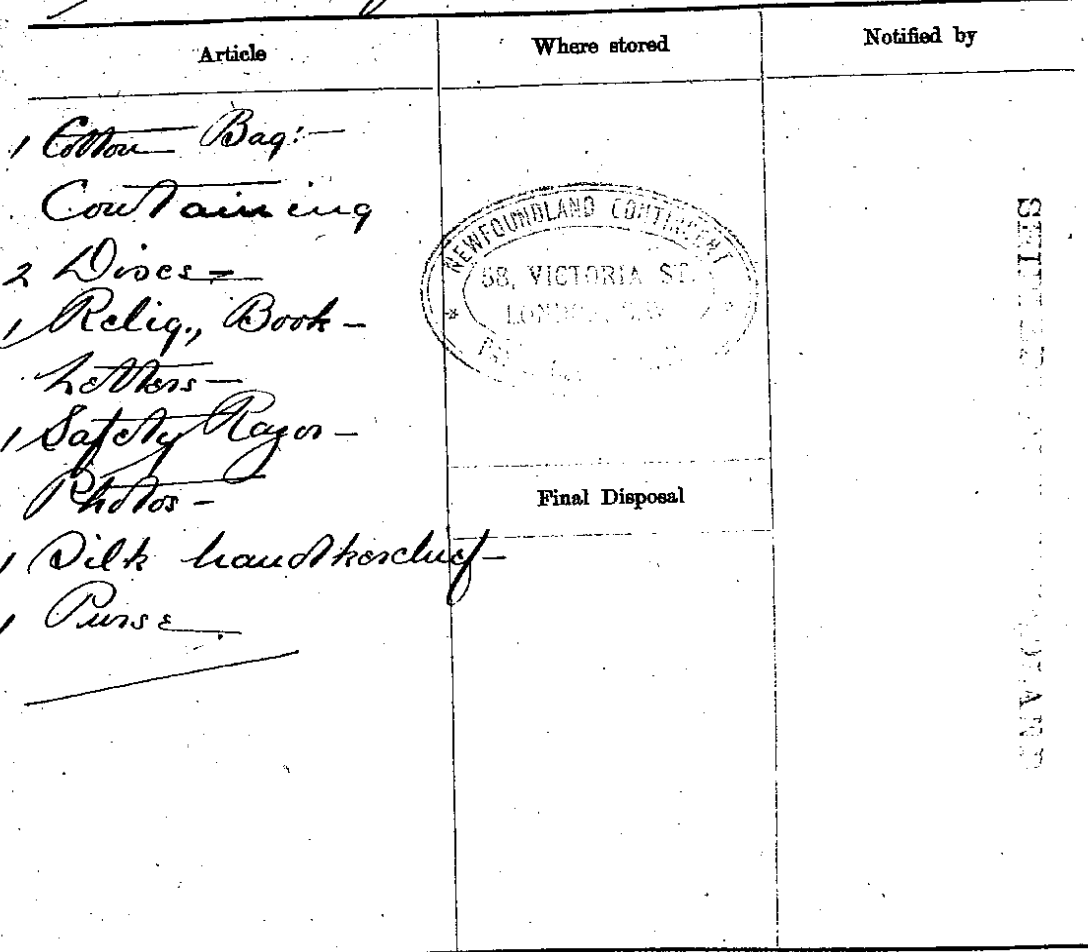 Article
Where stored
Notified by
1 Cotton Bag:-
Containing
2 Discs -
1 Relig., Book -
Letters -
1 Safety Razor -
Photos -
1 Silk handkerchief -
1 Purse
NEWFOUNDLAND CONTINGENT
58, VICTORIA ST.
LONDON, S.W.
Final Disposal